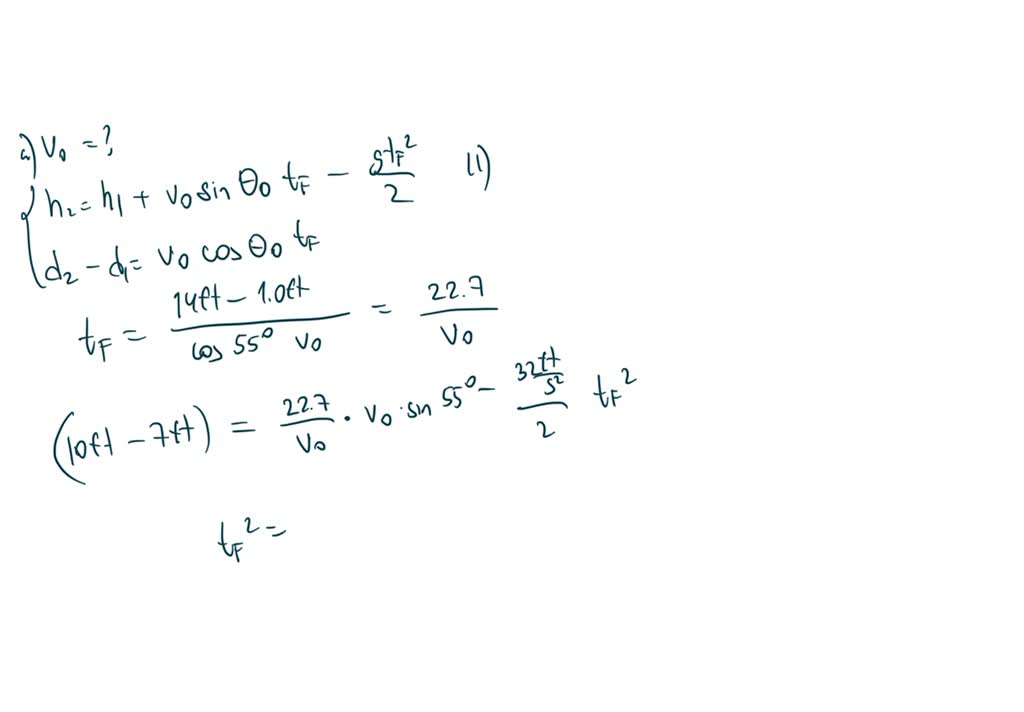 a) v₀ = ?
h₂ = h₁ + v₀ sin θ₀ t_F − gt_F²/2 (1)
d₂ − d₁ = v₀ cos θ₀ t_F
t_F = (14ft − 1.0ft)/(cos 55° v₀) = 22.7/v₀
(10ft − 7ft) = 22.7/v₀ · v₀ · sin 55° − (32 ft/s²)/2 t_F²
t_F² =